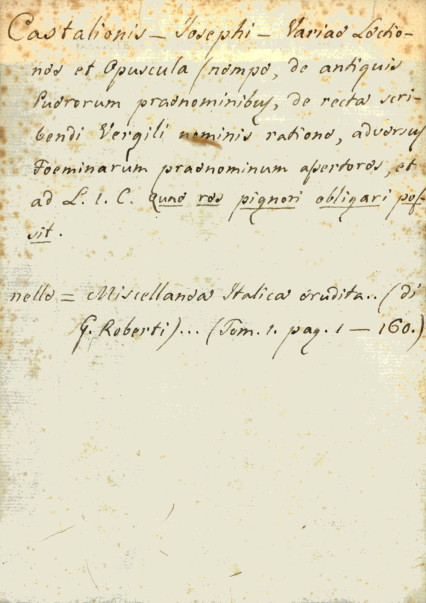 Castalionis - Josephi - Variae Lectio-
nes et Opuscula (nempe, de antiquis
Puerorum praenominibus, de recta scri-
bendi Vergili nominis ratione, adversus
Foeminarum praenominum assertores, et
ad L. 1. C. Quae res pignori obligari pos-
sit.
nello = Miscellanea Italica erudita.. (di
G. Roberti)... (Tom. 1. pag. 1 - 160.)